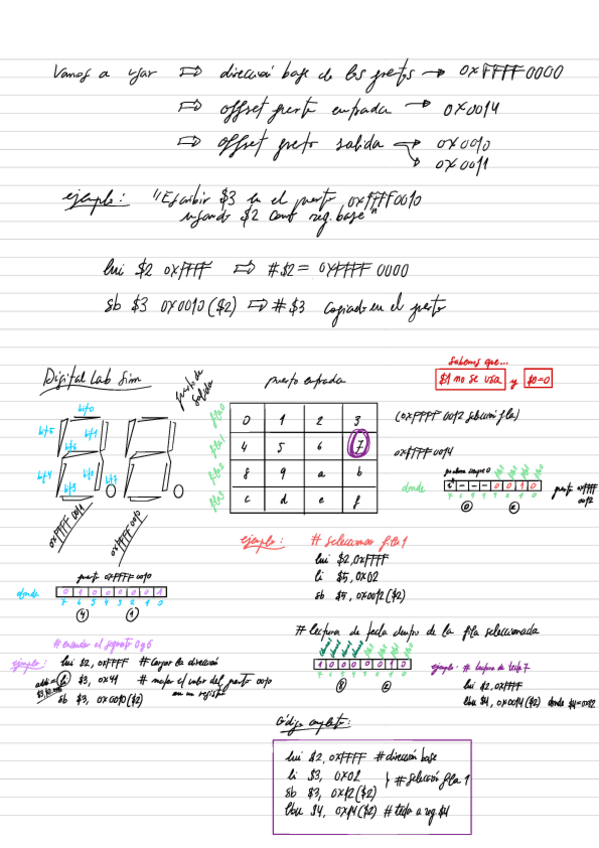 Vamos a usar ⇨ dirección base de los puertos → 0xFFFF0000
⇨ offset puerto entrada → 0x0014
⇨ offset puerto salida → 0x0010
→ 0x0011
ejemplo: "Escribir $3 en el puerto 0xFFFF0010
usando $2 como reg. base"
lui $2 0xFFFF ⇨ #$2 = 0xFFFF 0000
sb $3 0x0010($2) ⇨ #$3 copiado en el puerto
Sabemos que...
$1 no se usa y $0=0
Digital Lab Sim
puerto de salida
puerto entrada
bit0
bit5 bit1
bit6
bit4 bit2
bit3 bit7
0xFFFF 0011
0xFFFF 0010
fila0 0 1 2 3
fila1 4 5 6 7
fila2 8 9 a b
fila3 c d e f
(0xFFFF 0012 selección fila)
0xFFFF 0014
donde
- - - 0 0 1 0
7 6 5 4 3 2 1 0
puerto 0xFFFF 0012
0 2
puerto 0xFFFF 0010
donde 0 1 0 0 0 0 0 1
7 6 5 4 3 2 1 0
4 1
ejemplo: # seleccionar fila 1
lui $2, 0xFFFF
li $5, 0x02
sb $5, 0x0012($2)
# lectura de tecla dentro de la fila seleccionada
1 0 0 0 0 0 1 0
7 6 5 4 3 2 1 0
8 2
# encender el segmento 0 y 6
ejemplo: lui $2, 0xFFFF # cargar la dirección
li $3, 0x41 # mover el valor del puerto 0010
en un registro
sb $3, 0x0010($2)
ejemplo: # lectura de tecla 7
lui $2, 0xFFFF
lbu $4, 0x0014($2) donde $4=0x82
Código completo:
lui $2, 0xFFFF # dirección base
li $3, 0x02
} # selección fila 1
sb $3, 0x12($2)
lbu $4, 0x14($2) # tecla a reg. $4